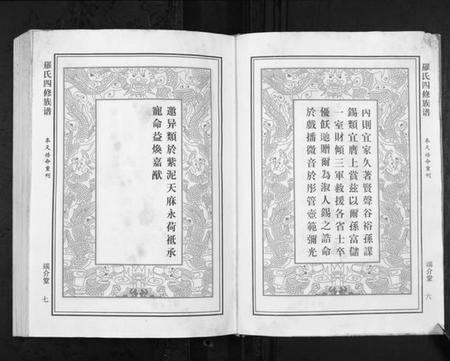 內則宜家久著賢聲谷裕孫謀
錫類宜膺上賞茲以爾孫富儲
一室財傾三軍救援各省士卒
優飫地贈爾為淑人錫之誥命
於戲播微音於彤管壼範彌光
六
邀异類於紫泥天庥永荷祗承
寵命益煥嘉猷
羅氏四修族谱
奉天誥命重刊
七